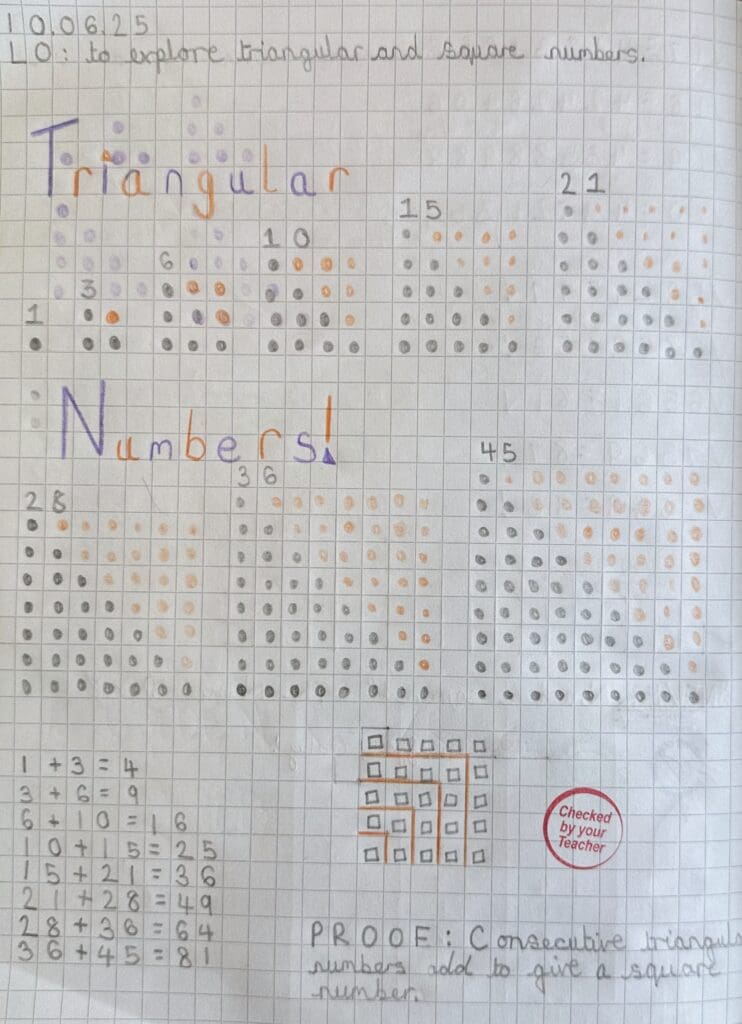 10.06.25
LO: to explore triangular and square numbers.
Triangular
21
15
10
6
3
1
Numbers!
45
36
28
1 + 3 = 4
3 + 6 = 9
6 + 10 = 16
10 + 15 = 25
15 + 21 = 36
21 + 28 = 49
28 + 36 = 64
36 + 45 = 81
Checked
by your
Teacher
PROOF: Consecutive triangula
numbers add to give a square
number.